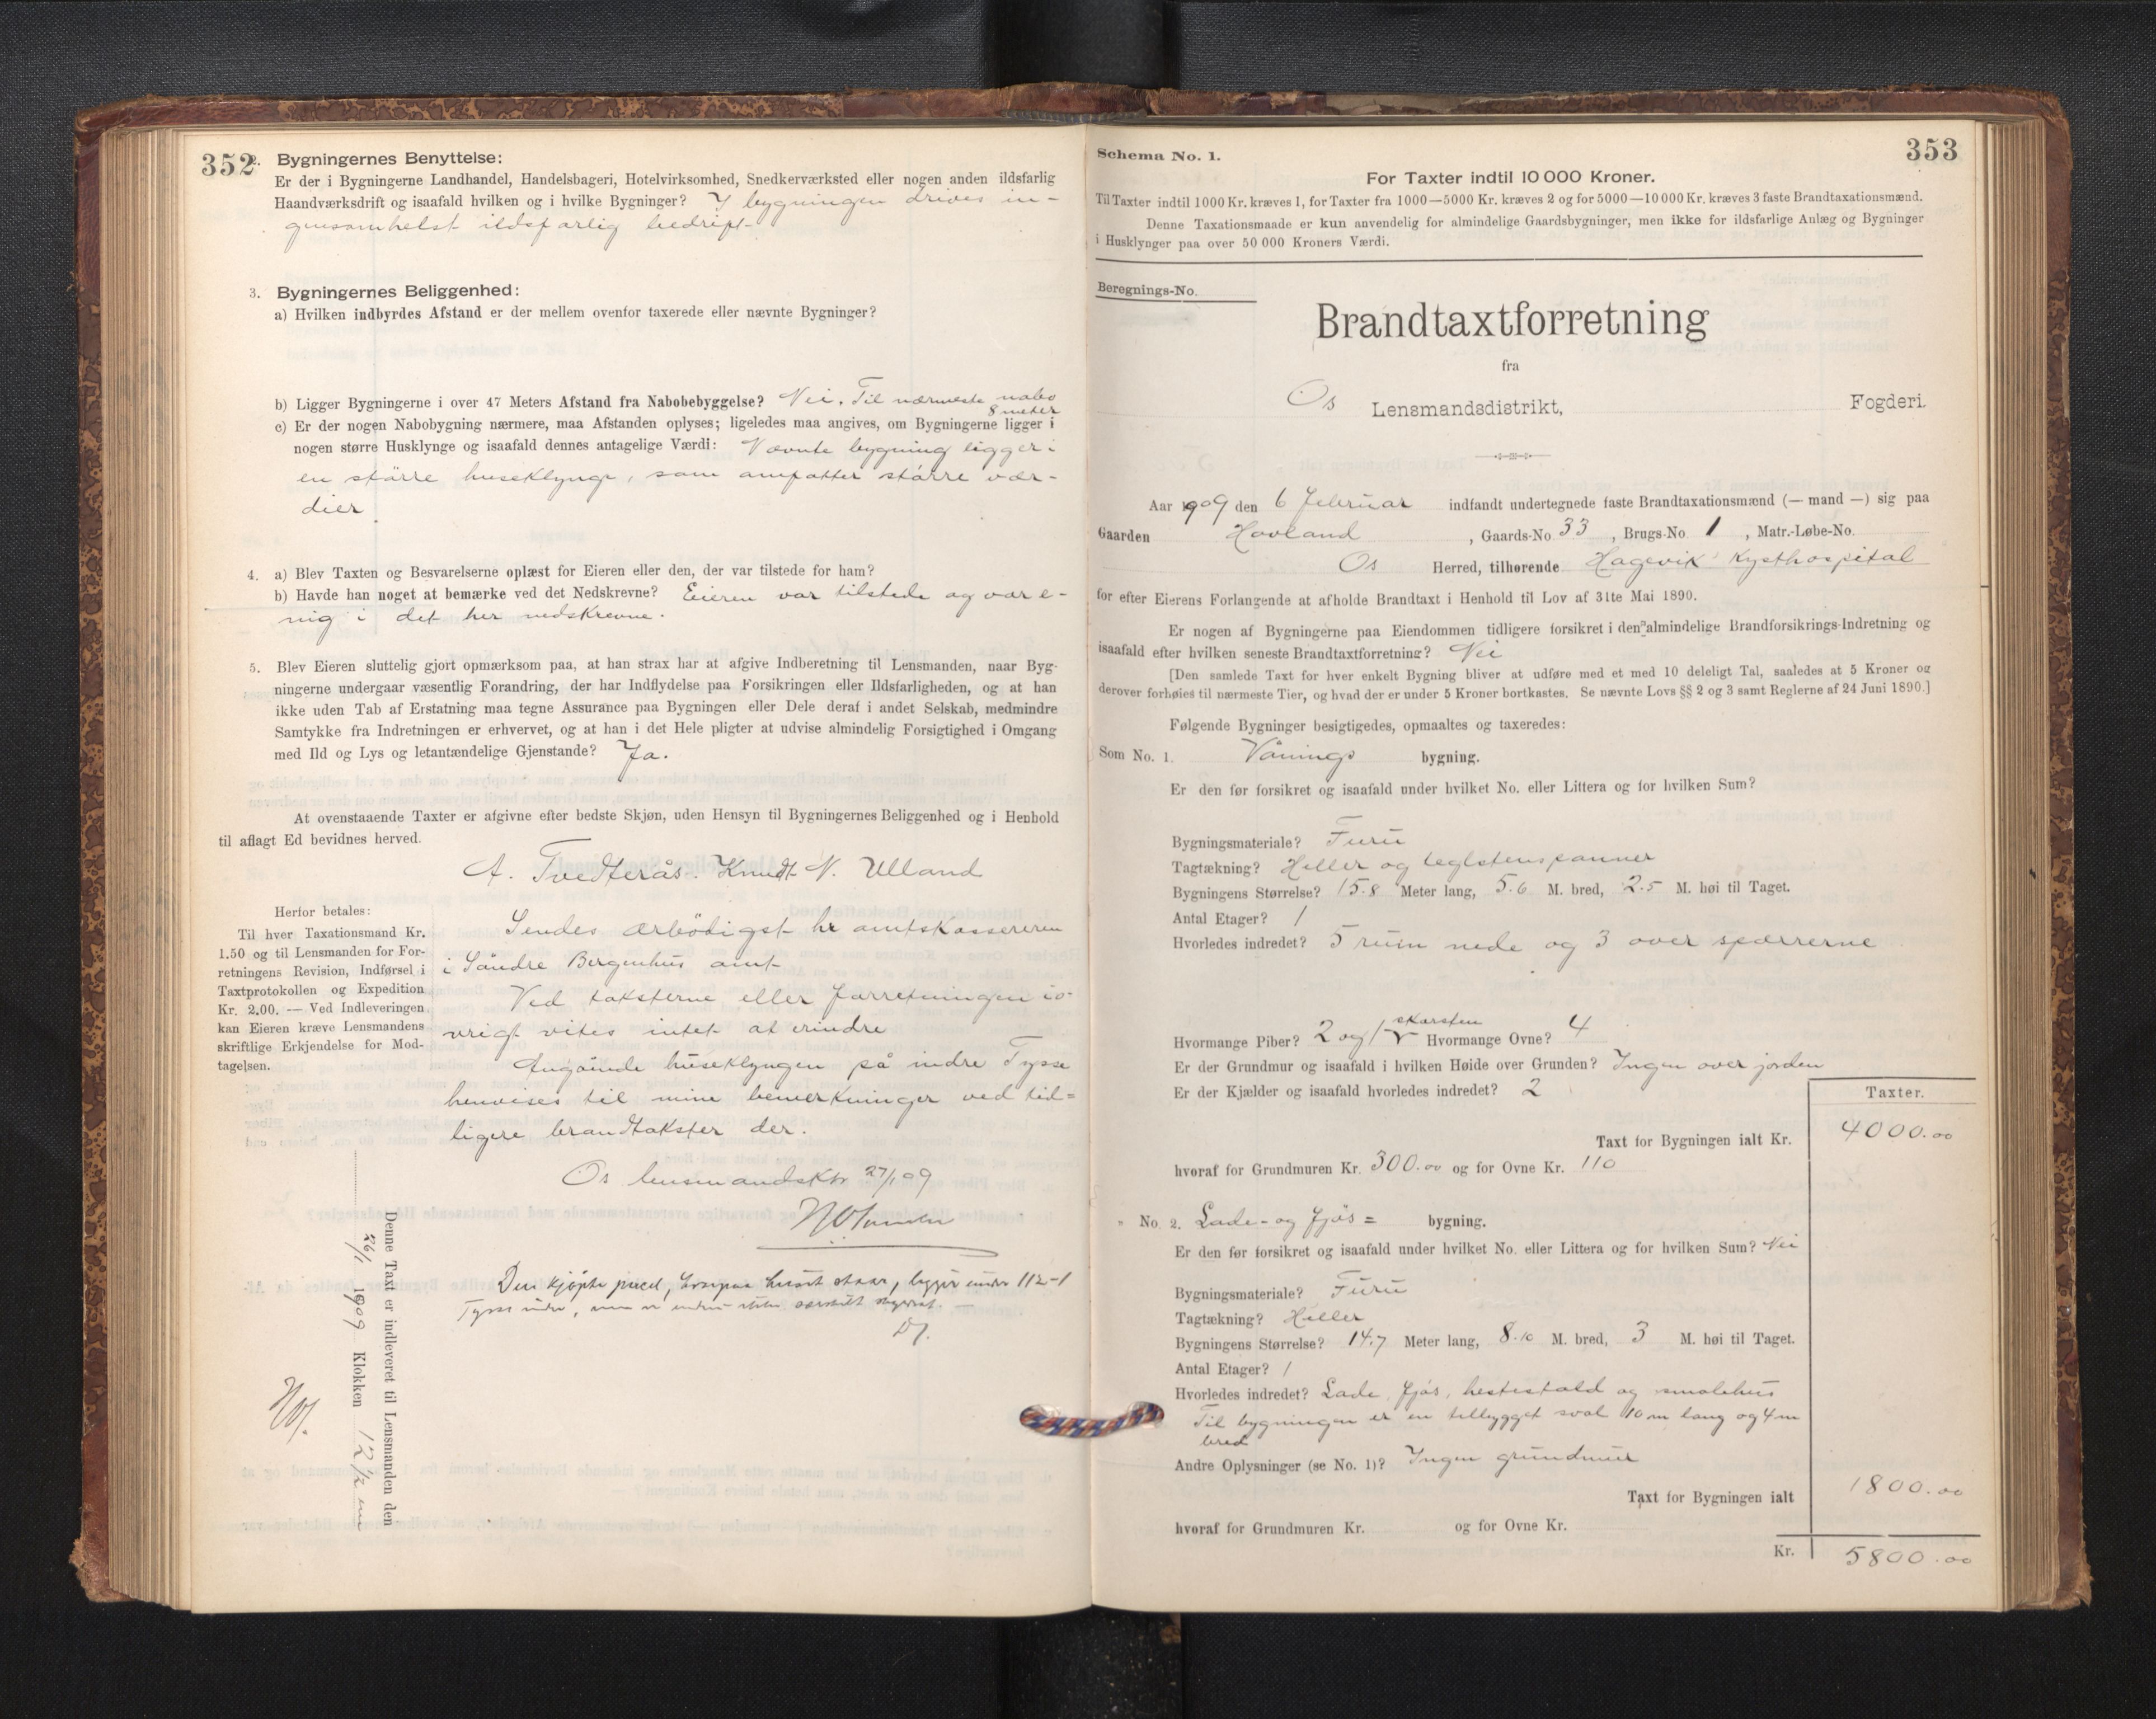 352
2. Bygningernes Benyttelse:
Er der i Bygningerne Landhandel, Handelsbageri, Hotelvirksomhed, Snedkerværksted eller nogen anden ildsfarlig
Haandværksdrift og isaafald hvilken og i hvilke Bygninger? I bygningen drives in-
gensomhelst ildsfarlig bedrift
3. Bygningernes Beliggenhed:
a) Hvilken indbyrdes Afstand er der mellem ovenfor taxerede eller nævnte Bygninger?
b) Ligger Bygningerne i over 47 Meters Afstand fra Nabobebyggelse? Nei. Til nærmeste nabo
8 meter
c) Er der nogen Nabobygning nærmere, maa Afstanden oplyses; ligeledes maa angives, om Bygningerne ligger i
nogen større Husklynge og isaafald dennes antagelige Værdi: Nævnte bygning ligger i
en større huseklynge, som omfatter større vær-
dier
4. a) Blev Taxten og Besvarelserne oplæst for Eieren eller den, der var tilstede for ham?
b) Havde han noget at bemærke ved det Nedskrevne? Eieren var tilstede og var e-
nig i det her nedskrevne.
5. Blev Eieren sluttelig gjort opmærksom paa, at han strax har at afgive Indberetning til Lensmanden, naar Byg-
ningerne undergaar væsentlig Forandring, der har Indflydelse paa Forsikringen eller Ildsfarligheden, og at han
ikke uden Tab af Erstatning maa tegne Assurance paa Bygningen eller Dele deraf i andet Selskab, medmindre
Samtykke fra Indretningen er erhvervet, og at han i det Hele pligter at udvise almindelig Forsigtighed i Omgang
med Ild og Lys og letantændelige Gjenstande? Ja.
At ovenstaaende Taxter er afgivne efter bedste Skjøn, uden Hensyn til Bygningernes Beliggenhed og i Henhold
til aflagt Ed bevidnes herved.
A. Tvedterås. Knudt N. Ulland
Herfor betales:
Til hver Taxationsmand Kr.
1.50 og til Lensmanden for For-
retningens Revision, Indførsel i
Taxtprotokollen og Expedition
Kr. 2.00. — Ved Indleveringen
kan Eieren kræve Lensmandens
skriftlige Erkjendelse for Mod-
tagelsen.
Sendes ærbødigst hr amtskassereren
i Søndre Bergenhus amt
Ved taksterne eller forretningen iø-
vrigt vites intet at erindre
Angående huseklyngen på indre Tysse
henvises til mine bemerkninger ved tid=
ligere brandtakster der.
Os lensmandsktr 27/1 09
Den kjøpte parcel, hvorpaa huset staar, ligger under 112-1
Tysse indre, men er endnu ikke særskilt skyldsat. —
Denne Taxt er indleveret til Lensmanden den
26/1 1909 Klokken 12 1/2 em
353
Schema No. 1.
For Taxter indtil 10 000 Kroner.
Til Taxter indtil 1000 Kr. kræves 1, for Taxter fra 1000—5000 Kr. kræves 2 og for 5000—10 000 Kr. kræves 3 faste Brandtaxationsmænd.
Denne Taxationsmaade er kun anvendelig for almindelige Gaardsbygninger, men ikke for ildsfarlige Anlæg og Bygninger
i Husklynger paa over 50 000 Kroners Værdi.
Beregnings-No.
Brandtaxtforretning
fra
Os Lensmandsdistrikt, Fogderi.
Aar 1909 den 6 februar indfandt undertegnede faste Brandtaxationsmænd (— mand —) sig paa
Gaarden Hovland, Gaards-No 33, Brugs-No 1, Matr.-Løbe-No.
Os Herred, tilhørende Hagevik Kysthospital
for efter Eierens Forlangende at afholde Brandtaxt i Henhold til Lov af 31te Mai 1890.
Er nogen af Bygningerne paa Eiendommen tidligere forsikret i den almindelige Brandforsikrings-Indretning og
isaafald efter hvilken seneste Brandtaxtforretning? Nei
[Den samlede Taxt for hver enkelt Bygning bliver at udføre med et med 10 deleligt Tal, saaledes at 5 Kroner og
derover forhøies til nærmeste Tier, og hvad der er under 5 Kroner bortkastes. Se nævnte Lovs §§ 2 og 3 samt Reglerne af 24 Juni 1890.]
Følgende Bygninger besigtigedes, opmaaltes og taxeredes:
Som No. 1. Vånings bygning.
Er den før forsikret og isaafald under hvilket No. eller Littera og for hvilken Sum?
Bygningsmateriale? Furu
Tagtækning? Heller og teglstenspanner
Bygningens Størrelse? 15.8 Meter lang, 5.6 M. bred, 2.5 M. høi til Taget.
Antal Etager? 1
Hvorledes indredet? 5 rum nede og 3 over sperrerne
skorsten
Hvormange Piber? 2 og 1 Hvormange Ovne? 4
Er der Grundmur og isaafald i hvilken Høide over Grunden? Ingen over jorden
Er der Kjælder og isaafald hvorledes indredet? 2
Taxter.
Taxt for Bygningen ialt Kr. 4000.00
hvoraf for Grundmuren Kr. 300.00 og for Ovne Kr. 110
" No. 2. Lade- og fjøs= bygning.
Er den før forsikret og isaafald under hvilket No. eller Littera og for hvilken Sum? Nei
Bygningsmateriale? Furu
Tagtækning? Heller
Bygningens Størrelse? 14.7 Meter lang, 8.10 M. bred, 3 M. høi til Taget.
Antal Etager? 1
Hvorledes indredet? Lade, fjøs, hestestald og smalehus
Til bygningen er en tilbygget sval 10 m lang og 4 m
bred
Andre Oplysninger (se No. 1)? Ingen grundmur
Taxt for Bygningen ialt 1800.00
hvoraf for Grundmuren Kr. og for Ovne Kr.
Kr. 5800.00